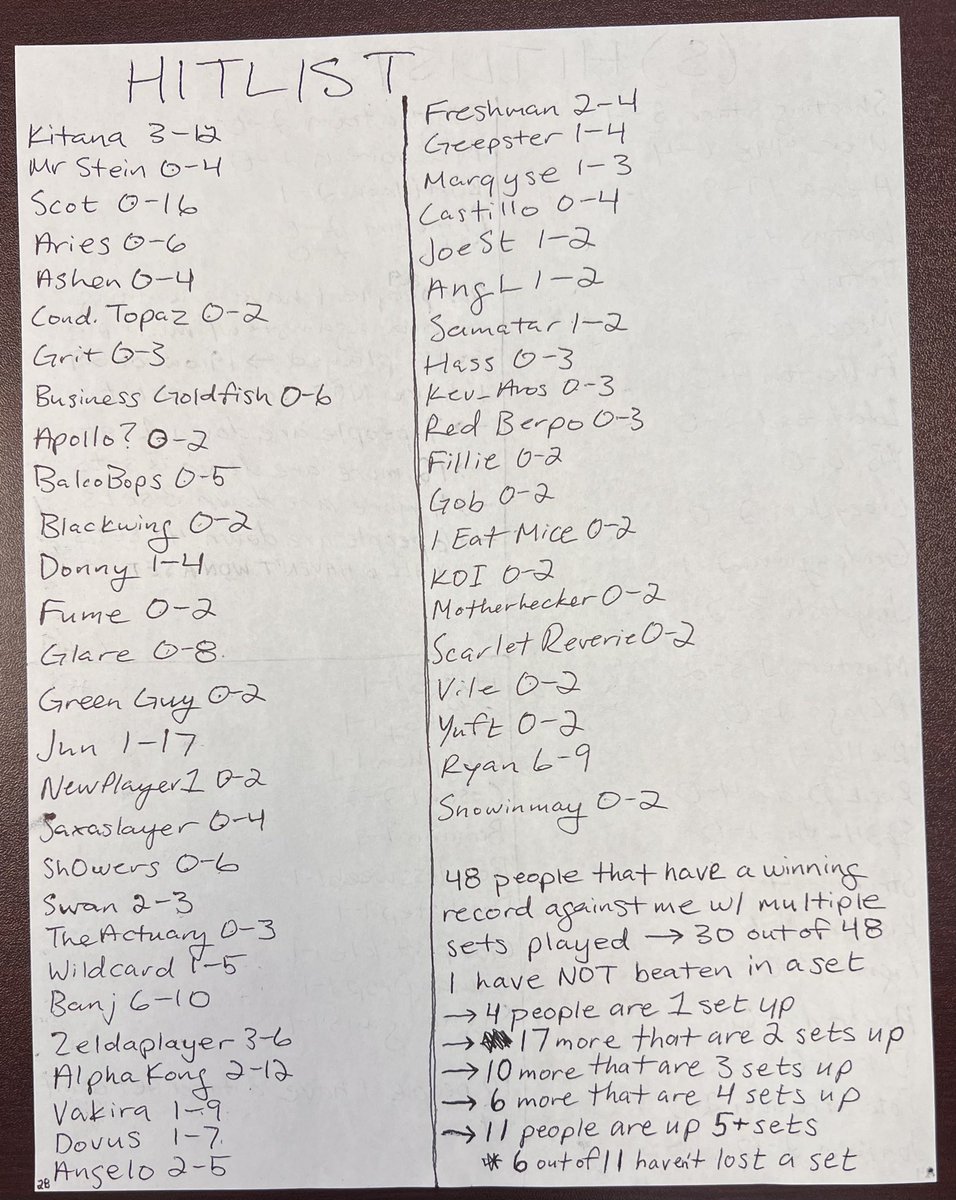 HITLIST
Kitana 3-12
Mr Stein 0-4
Scot 0-16
Aries 0-6
Ashen 0-4
Cond. Topaz 0-2
Grit 0-3
Business Goldfish 0-6
Apollo? 0-2
BalcoBops 0-5
Blackwing 0-2
Donny 1-4
Fume 0-2
Glare 0-8
Green Guy 0-2
Jun 1-17
NewPlayer1 0-2
Saxaslayer 0-4
ShOwers 0-6
Swan 2-3
TheActuary 0-3
Wildcard 1-5
Banj 6-10
Zeldaplayer 3-6
Alpha Kong 2-12
Vakira 1-9
Dovus 1-7
Angelo 2-5
28
Freshman 2-4
Geepster 1-4
Marqyse 1-3
Castillo 0-4
JoeSt 1-2
AngL 1-2
Samatar 1-2
Hass 0-3
Kev_Aros 0-3
Red Berpo 0-3
Fillie 0-2
Gob 0-2
I Eat Mice 0-2
KOI 0-2
Motherhecker 0-2
Scarlet Reverie 0-2
Vile 0-2
Yuft 0-2
Ryan 6-9
Snowinmay 0-2
48 people that have a winning
record against me w/ multiple
sets played → 30 out of 48
I have NOT beaten in a set
→ 4 people are 1 set up
→ 17 more that are 2 sets up
→ 10 more that are 3 sets up
→ 6 more that are 4 sets up
→ 11 people are up 5+ sets
* 6 out of 11 haven't lost a set